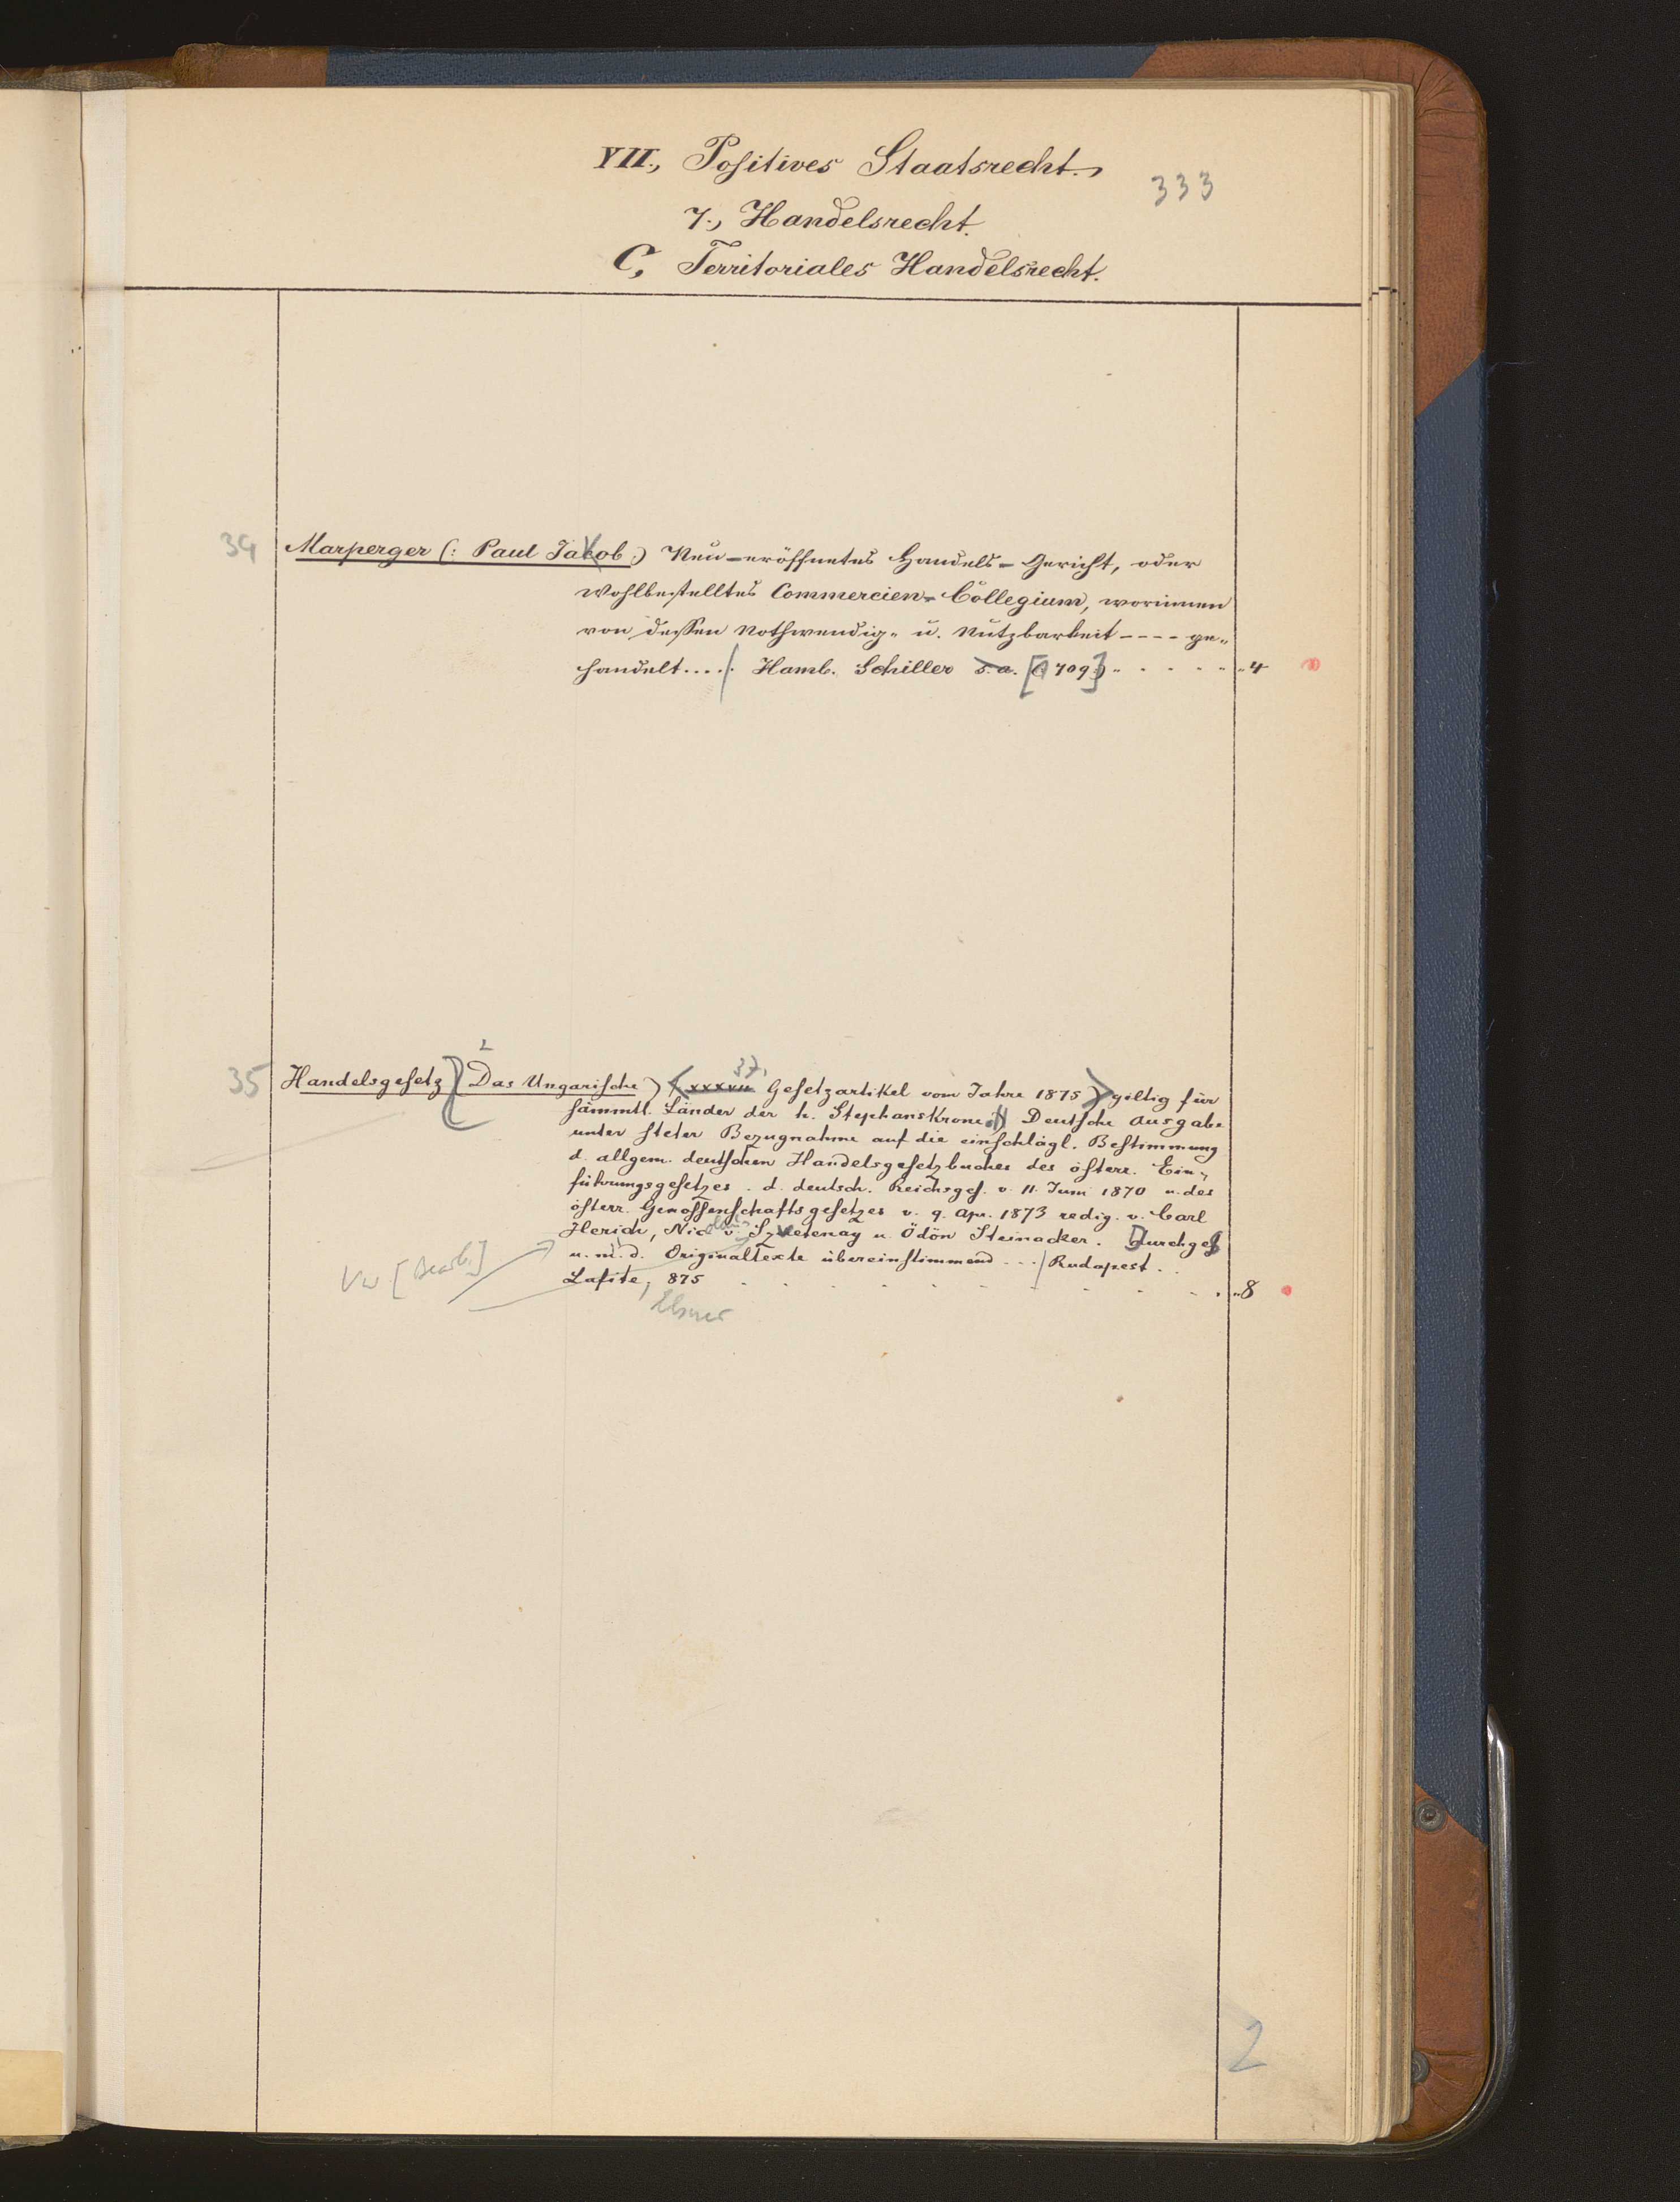 VII., Positives Staatsrecht.
333
7., Handelsrecht.
C, Territoriales Handelsrecht.
34 Marperger (: Paul Jakob :) Neu-eröffnetes Handels-Gericht, oder
wohlbestelltes Commercien-Collegium, worinnen
von dessen Nothwendig- u. Nutzbarkeit ---- ge-
handelt.... / Hamb. Schiller s. a. [1709] . . . . . 4
35 Handelsgesetz (Das Ungarische) (XXXVII 37. Gesetzartikel vom Jahre 1875) giltig für
sämmtl. Länder der h. Stephanskrone. Deutsche Ausgabe
unter steter Bezugnahme auf die einschlägl. Bestimmung
d. allgem. deutschen Handelsgesetzbuches des österr. Ein-
führungsgesetzes. d. deutsch. Reichsges. v. 11. Juni 1870 u. des
österr. Genossenschaftsgesetzes v. 9. Apr. 1873 redig. v. Carl
Herich, Nic v. Szvetenay u. Ödön Steinacker. Durchges
u. m. d. Originaltexte übereinstimmend . . . / Budapest. . .
[Bearb.]
Lafite, 875 . . . . . . . . . . 8
2